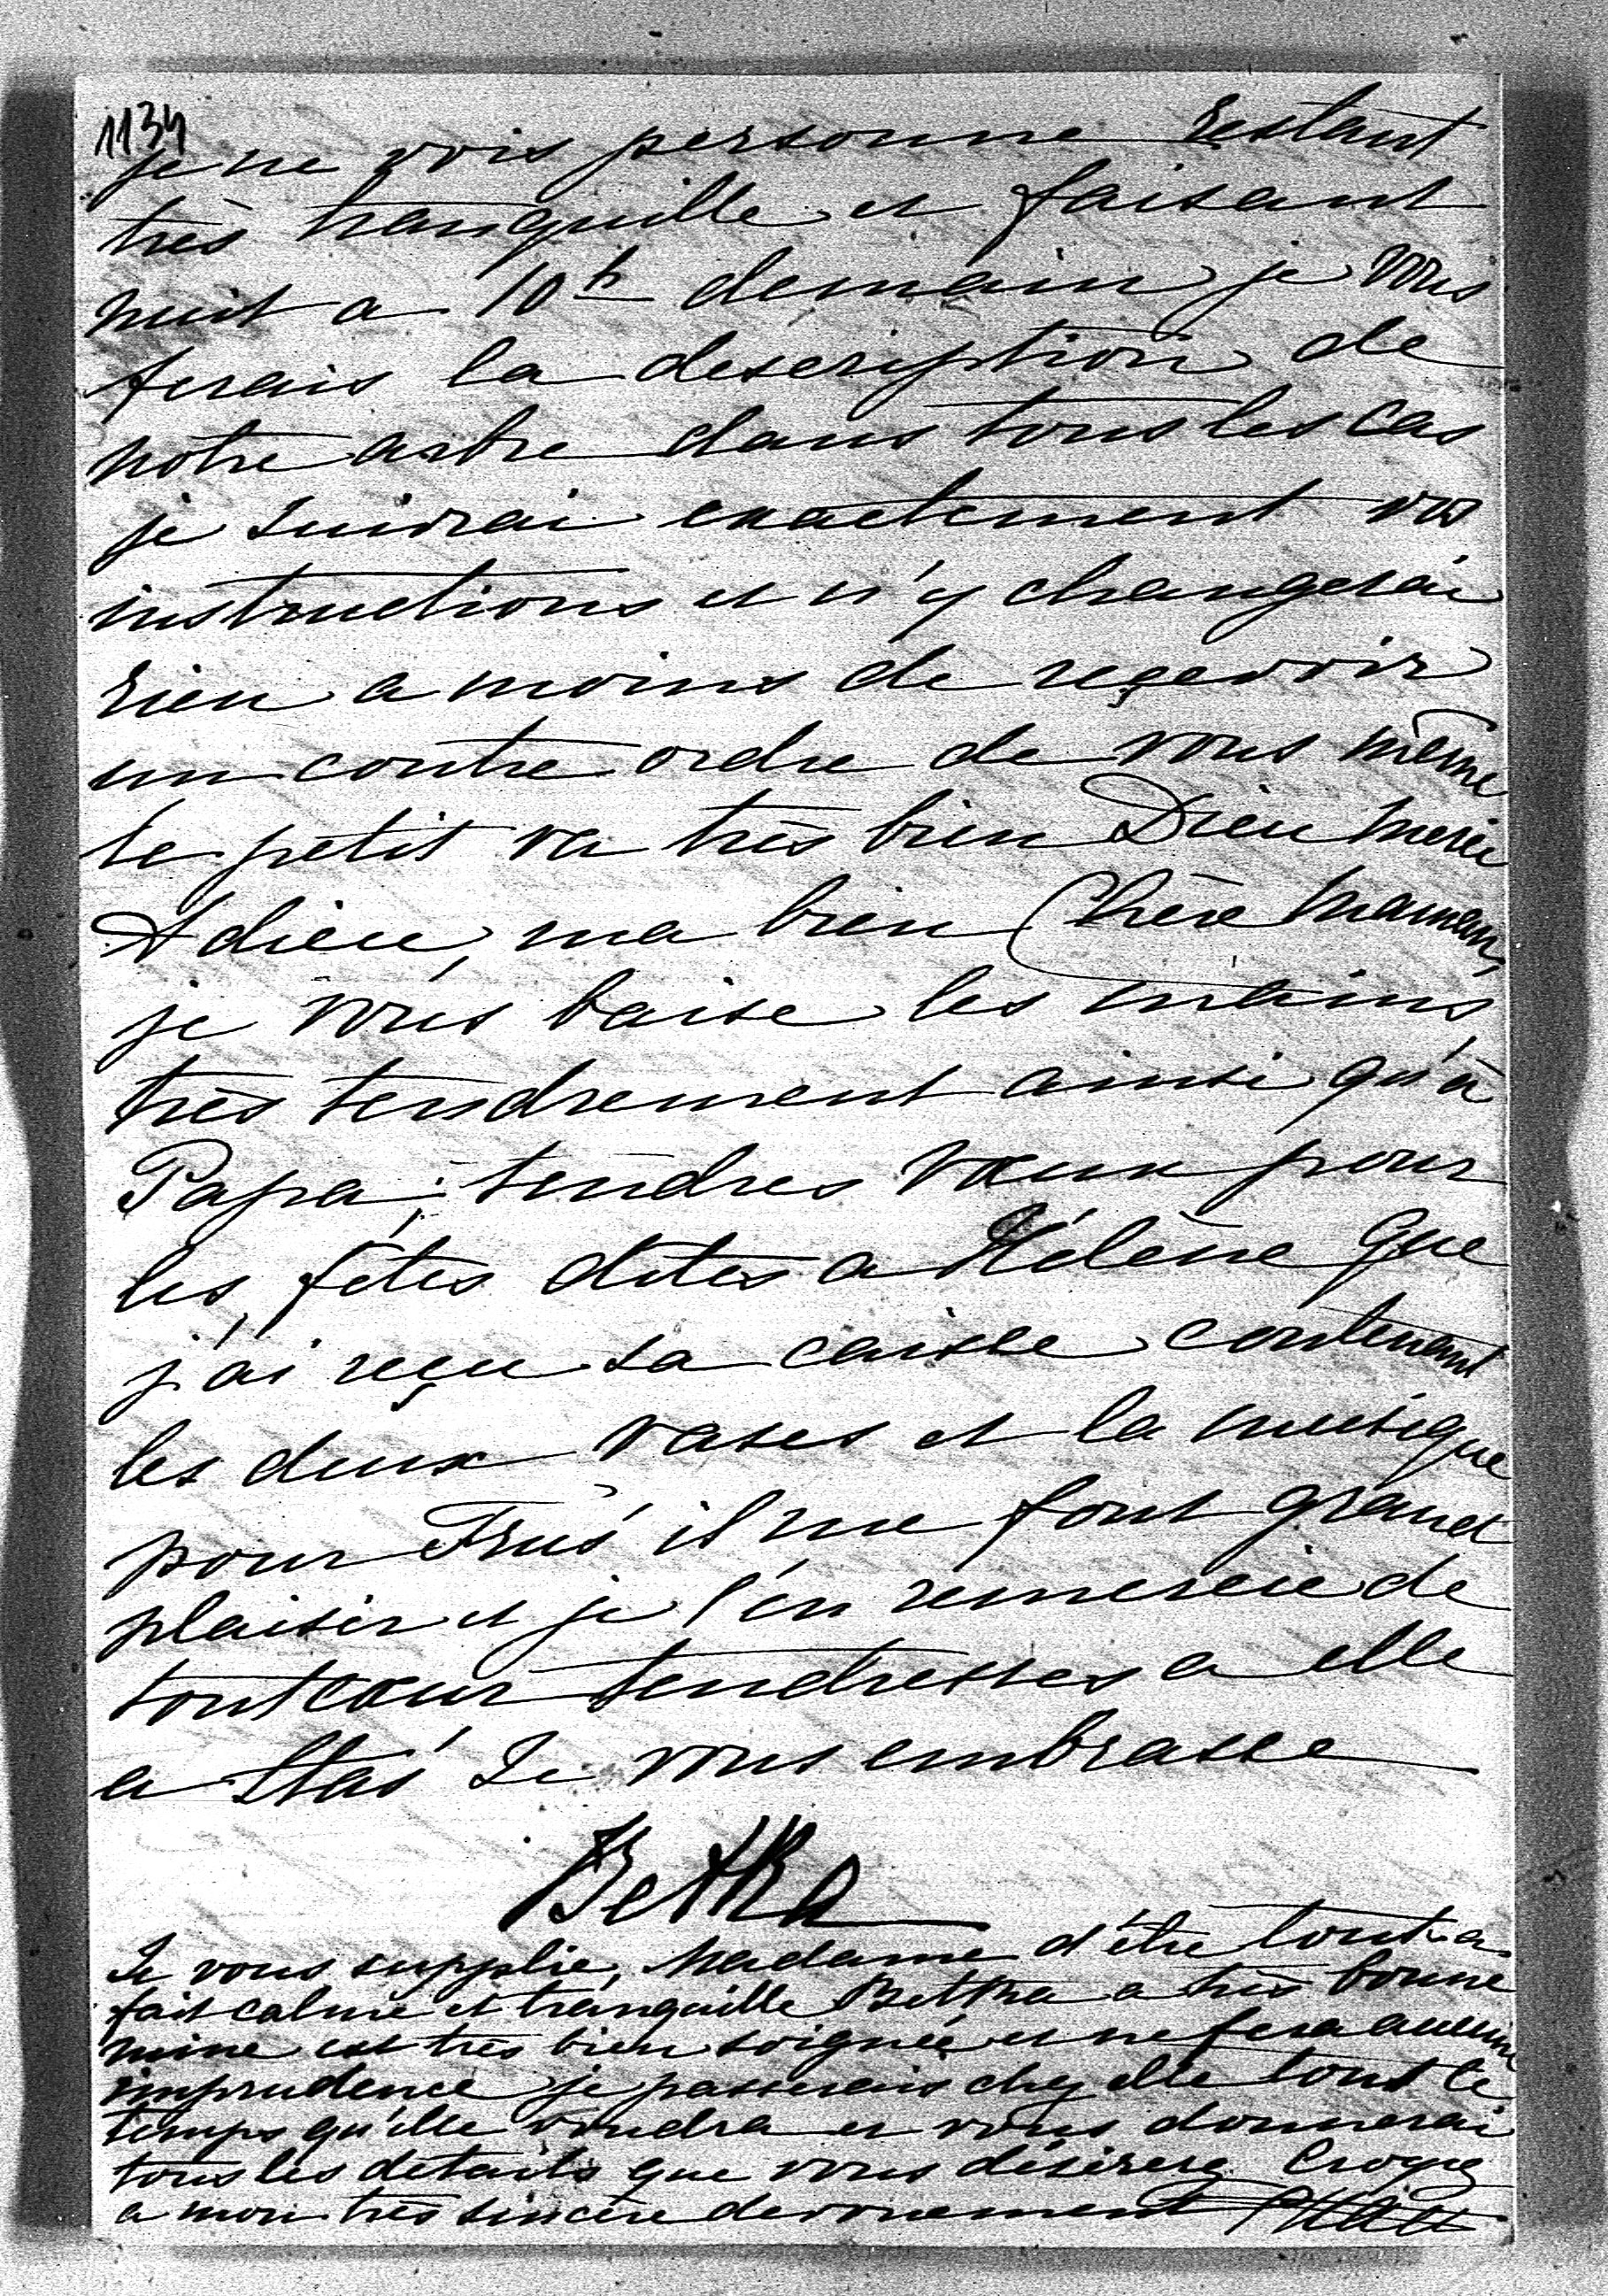 1134
je ne vois personne restant
très tranquille et faisant
nuit a 10h demain je vous
ferais la description de
notre arbre dans tous les cas
je suivrai exactement vos
instructions et n'y changerai
rien a moins de reçevoir
un contre ordre de vous même
le petit va très bien Dieu merci
Adieu, ma bien Chère Maman,
je vous baise les mains
très tendrement ainsi qu'à
Papa; tendres vœux pour
les fêtes dites a Hélène que
j'ai reçu sa caisse contenant
les deux vases et la musique
pour il me font grand
plaisir et je l'en remercie de
tout cœur tendresses a elle
a Stas Je vous embrasse
Betka
Je vous supplie, Madame d'être tout a
fait calme et tranquille Betka a très bonne
mine est très bien soignée et ne fera aucune
imprudence je passerais chez elle tout le
temps qu'elle voudra et vous donnerai
tous les détails que vous désirerez Croyez
a mon très sincère devouement